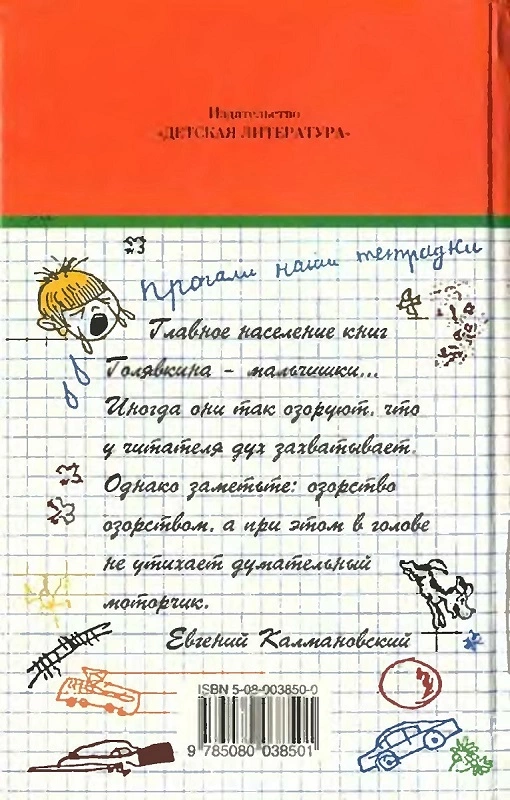 Издательство
«ДЕТСКАЯ ЛИТЕРАТУРА»
наши тетрадки
Главное население книг
Голявкина – мальчишки...
Иногда они так озоруют, что
у читателя дух захватывает.
Однако заметьте: озорство
озорством, а при этом в голове
не утихает думательный
моторчик.
Евгений Калмановский
ISBN 5-08-003850-0
9 785080 038501